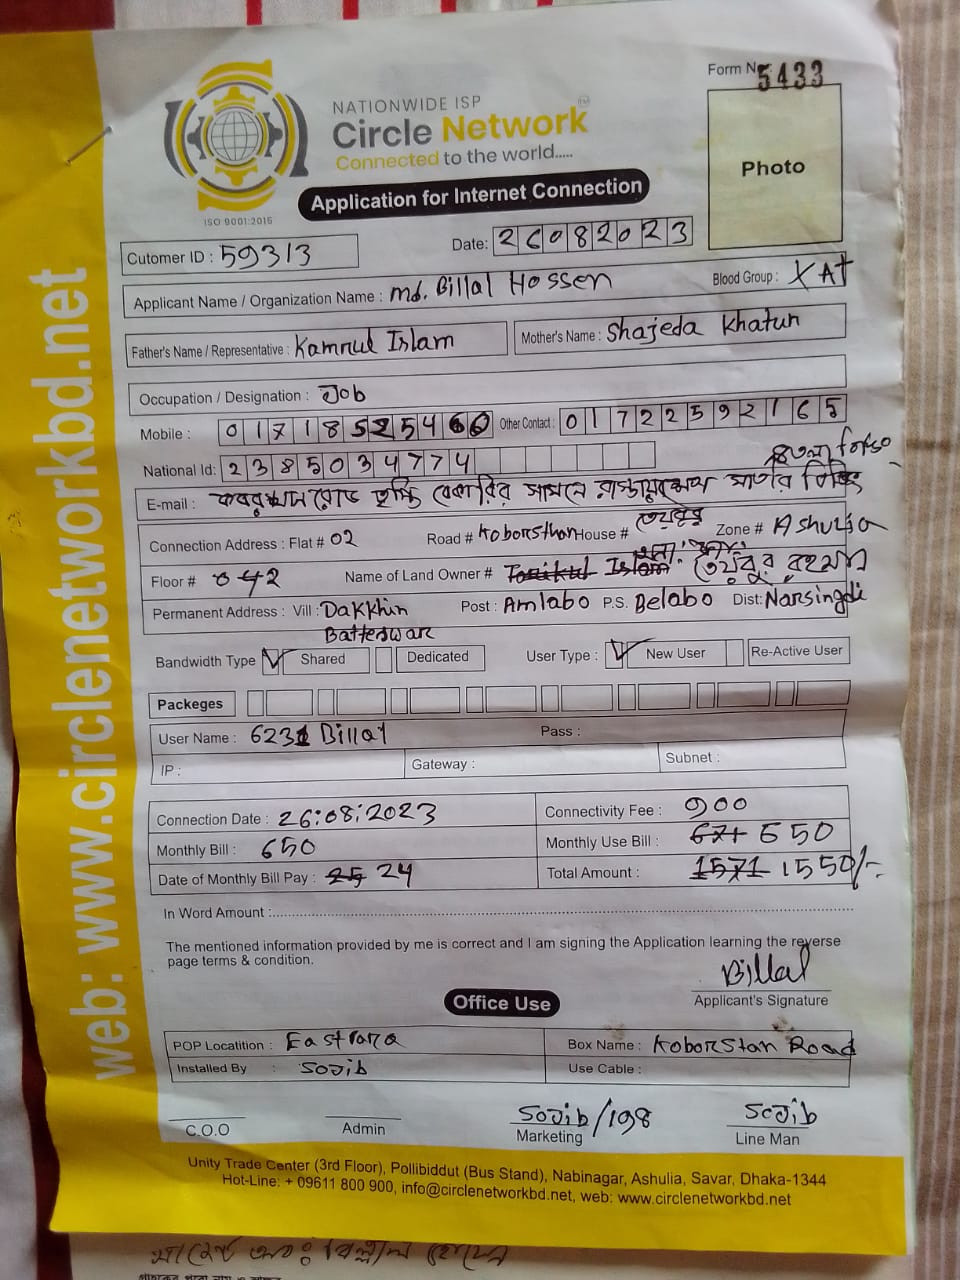 Form No. 5433
NATIONWIDE ISP
Circle Network TM
Connected to the world.....
ISO 9001:2015
Application for Internet Connection
Photo
Cutomer ID : 59313
Date: 26082023
Applicant Name / Organization Name : Md. Billal Hossen
Blood Group : A+
Father's Name / Representative : Kamrul Islam
Mother's Name : Shajeda Khatun
Occupation / Designation : Job
Mobile : 01718525460
Other Contact : 01722592165
National Id: 2385034774
E-mail : কবরস্থান রোড তৃপ্তি বেকারির সামনে
Connection Address : Flat # 02
Road # Koborsthan House #
Zone # Ashulia
Floor # 042
Name of Land Owner # Tarikul Islam
Permanent Address : Vill : Dakkhin
Batteswar
Post : Amlabo P.S. Belabo Dist: Narsingdi
Bandwidth Type Shared Dedicated
User Type : New User Re-Active User
Packeges
User Name : 6231 Billal
Pass :
IP :
Gateway :
Subnet :
Connection Date : 26:08:2023
Connectivity Fee : 900
Monthly Bill : 650
Monthly Use Bill : 671 650
Date of Monthly Bill Pay : 25 24
Total Amount : 1571 1550/-
In Word Amount :
The mentioned information provided by me is correct and I am signing the Application learning the reverse
page terms & condition.
Billal
Applicant's Signature
Office Use
POP Locatition : Eastnara
Box Name : Koborstan Road
Installed By : Sojib
Use Cable :
C.O.O
Admin
Sojib/198
Marketing
Sojib
Line Man
Unity Trade Center (3rd Floor), Pollibiddut (Bus Stand), Nabinagar, Ashulia, Savar, Dhaka-1344
Hot-Line: + 09611 800 900, info@circlenetworkbd.net, web: www.circlenetworkbd.net
web: www.circlenetworkbd.net